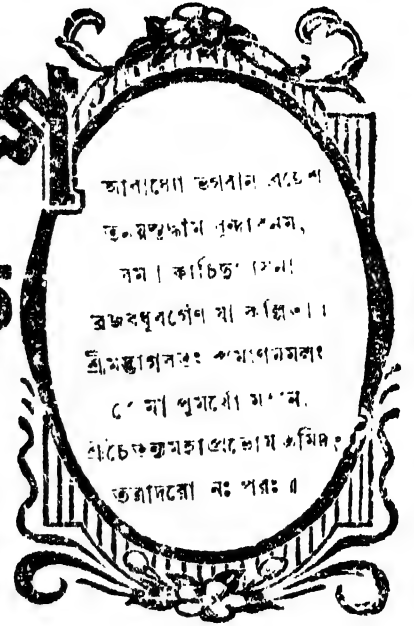 আরাধ্যো ভগবান ব্রজেশ
তনয়স্তদ্ধাম বৃন্দাবনম্,
রম্যা কাচিদু
ব্রজবধূবর্গেণ যা কল্পিতা।
শ্রীমদ্ভাগবতং প্রমাণমমলং
প্রেমা পুমর্থো মহান্,
শ্রীচৈতন্যমহাপ্রভোর্মতমিদং
তত্রাদরো নঃ পরঃ॥